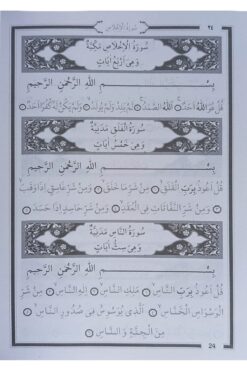 سُورَةُ الْإِخْلَاصِ ٢٤
سُورَةُ الْإِخْلَاصِ مَكِّيَّةٌ
وَهِيَ أَرْبَعُ آيَاتٍ
بِسْمِ اللَّهِ الرَّحْمَنِ الرَّحِيمِ
قُلْ هُوَ اللَّهُ أَحَدٌ ۝ اللَّهُ الصَّمَدُ ۝ لَمْ يَلِدْ وَلَمْ يُولَدْ ۝ وَلَمْ يَكُنْ لَهُ كُفُوًا أَحَدٌ ۝
سُورَةُ الْفَلَقِ مَدَنِيَّةٌ
وَهِيَ خَمْسُ آيَاتٍ
بِسْمِ اللَّهِ الرَّحْمَنِ الرَّحِيمِ
قُلْ أَعُوذُ بِرَبِّ الْفَلَقِ ۝ مِنْ شَرِّ مَا خَلَقَ ۝ وَمِنْ شَرِّ غَاسِقٍ إِذَا وَقَبَ
۝ وَمِنْ شَرِّ النَّفَّاثَاتِ فِي الْعُقَدِ ۝ وَمِنْ شَرِّ حَاسِدٍ إِذَا حَسَدَ ۝
سُورَةُ النَّاسِ مَدَنِيَّةٌ
وَهِيَ سِتُّ آيَاتٍ
بِسْمِ اللَّهِ الرَّحْمَنِ الرَّحِيمِ
قُلْ أَعُوذُ بِرَبِّ النَّاسِ ۝ مَلِكِ النَّاسِ ۝ إِلَهِ النَّاسِ ۝ مِنْ شَرِّ
الْوَسْوَاسِ الْخَنَّاسِ ۝ الَّذِي يُوَسْوِسُ فِي صُدُورِ النَّاسِ ۝
مِنَ الْجِنَّةِ وَالنَّاسِ ۝
24